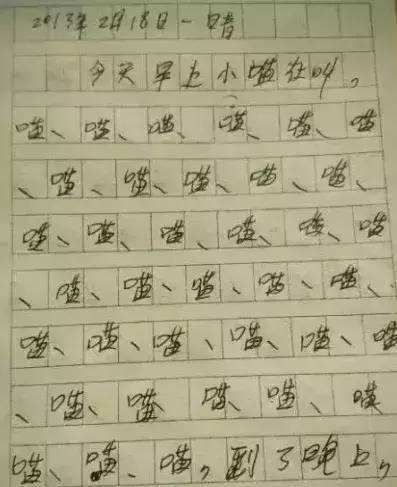 2013年2月18日一晴
今天早上小喵在叫。
喵、喵、喵、喵、喵、喵
、喵、喵、喵、喵、喵、
喵、喵、喵、喵、喵、喵
、喵、喵、喵、喵、喵、
喵、喵、喵、喵、喵、喵
、喵、喵 喵、喵、喵
喵、喵、喵，到了晚上，